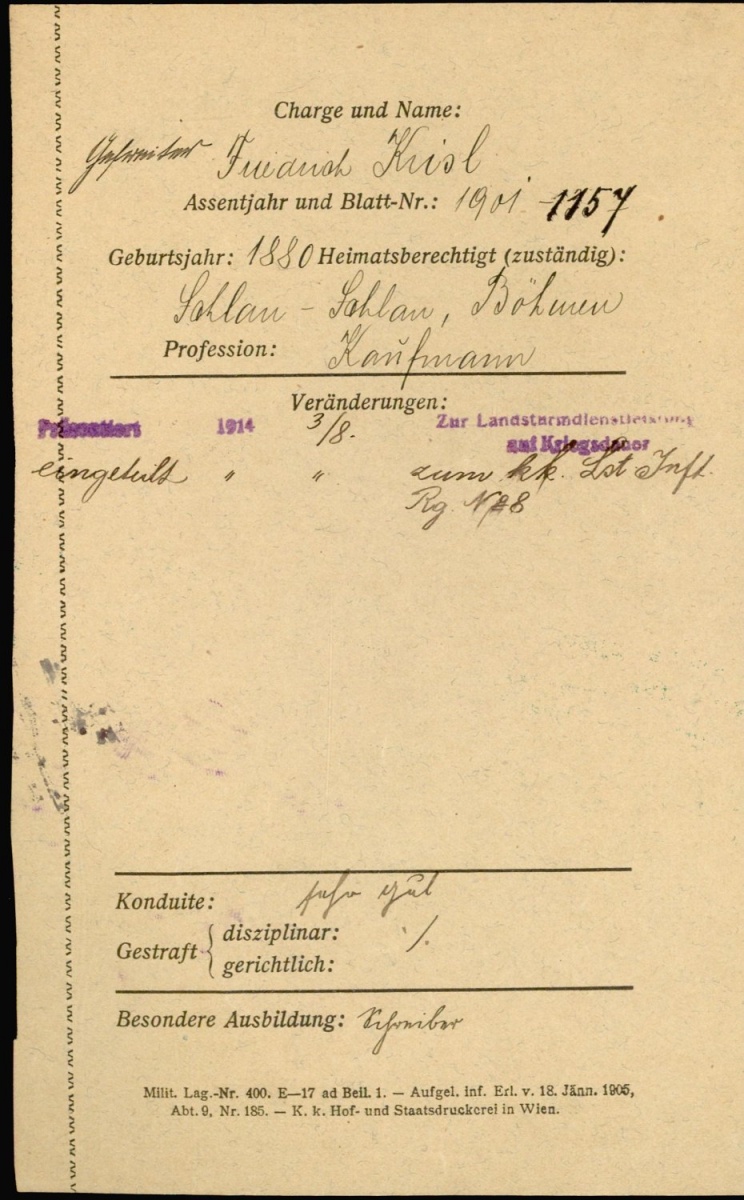 Charge und Name:
Gefreiter Friedrich Krisl
Assentjahr und Blatt-Nr.: 1901 - 1157
Geburtsjahr: 1880 Heimatsberechtigt (zuständig):
Schlan - Schlan, Böhmen
Profession: Kaufmann
Veränderungen:
Präsentiert 1914 3/8. Zur Landsturmdienstleistung
auf Kriegsdauer
eingeteilt " " zum kk. Lst Inft.
Rg. N 8
Konduite: sehr gut
Gestraft { disziplinar: ./.
gerichtlich:
Besondere Ausbildung: Schreiber
Milit. Lag.-Nr. 400. E—17 ad Beil. 1. — Aufgel. inf. Erl. v. 18. Jänn. 1905,
Abt. 9, Nr. 185. — K. k. Hof- und Staatsdruckerei in Wien.